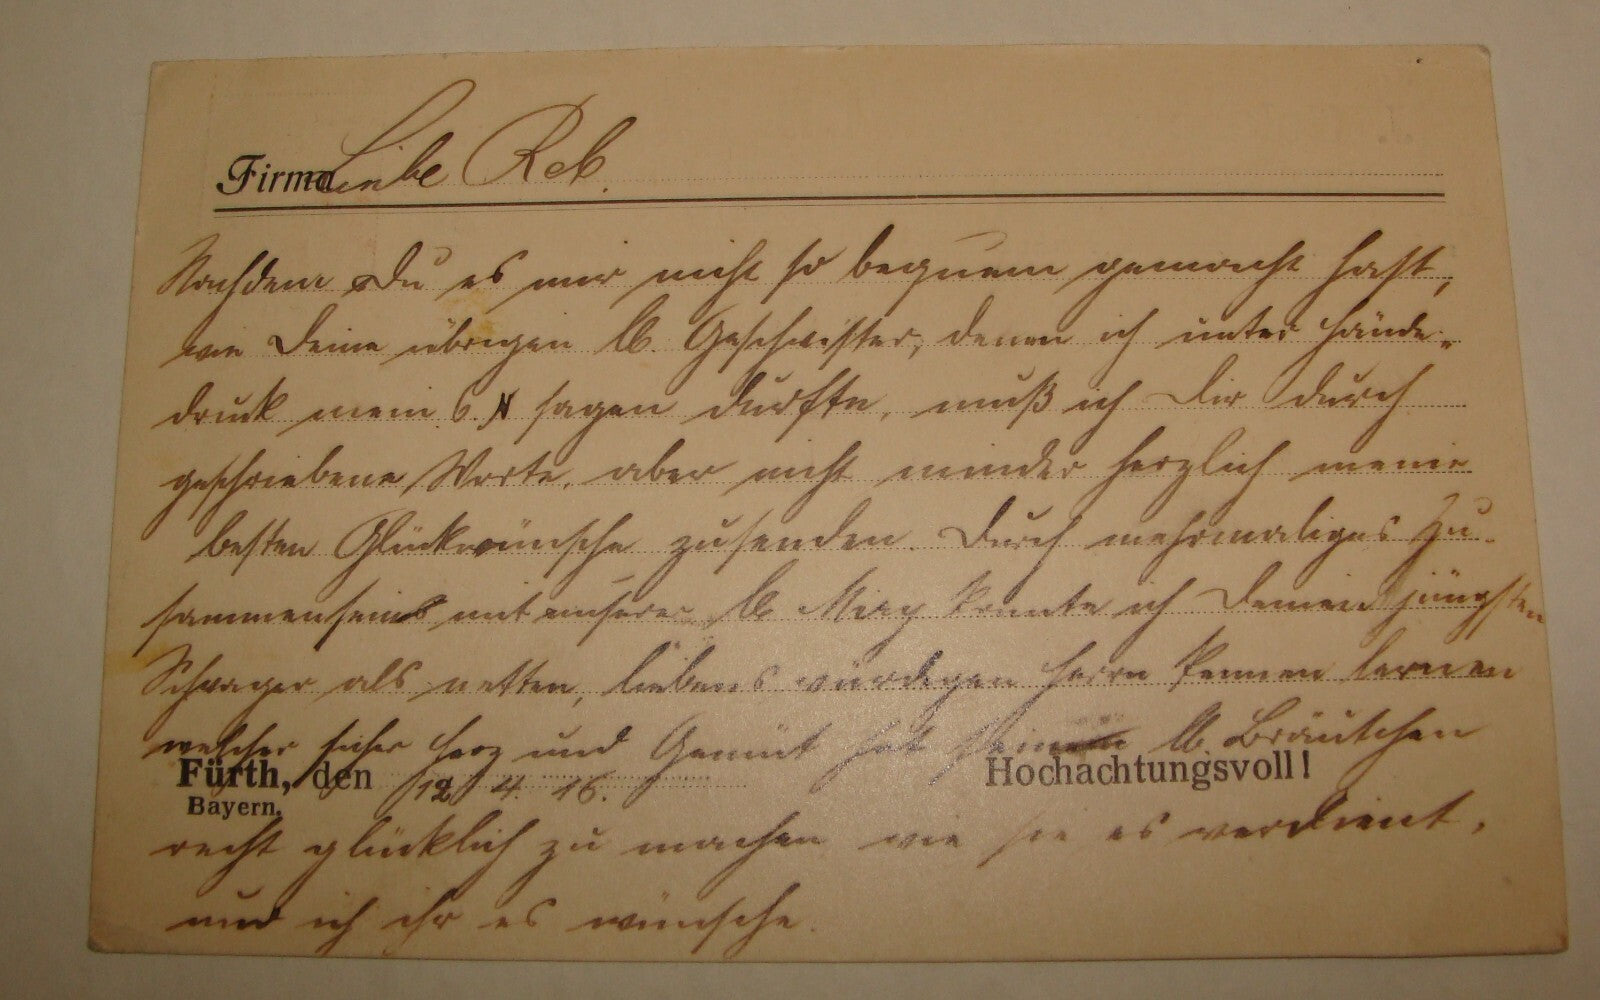 Firma Liebe Reb.
Nachdem Du es mir nicht so bequem gemacht hast,
wie Deine übrigen lb. Geschwister, denen ich unter Hände-
druck mein sagen durfte, muß ich Dir durch
geschriebene Worte, aber nicht minder herzlich meine
besten Glückwünsche zusenden. Durch mehrmaliges Zu-
sammensein mit unserer lb konnte ich Deinen jüngsten
Schwager als netten, liebenswürdigen Herrn kennen lernen
welcher sicher Herz und Gemüt hat sein lb. Bräutchen
Fürth, den 12 4. 16. Hochachtungsvoll!
Bayern.
recht glücklich zu machen wie sie es verdient,
und ich ihr es wünsche.